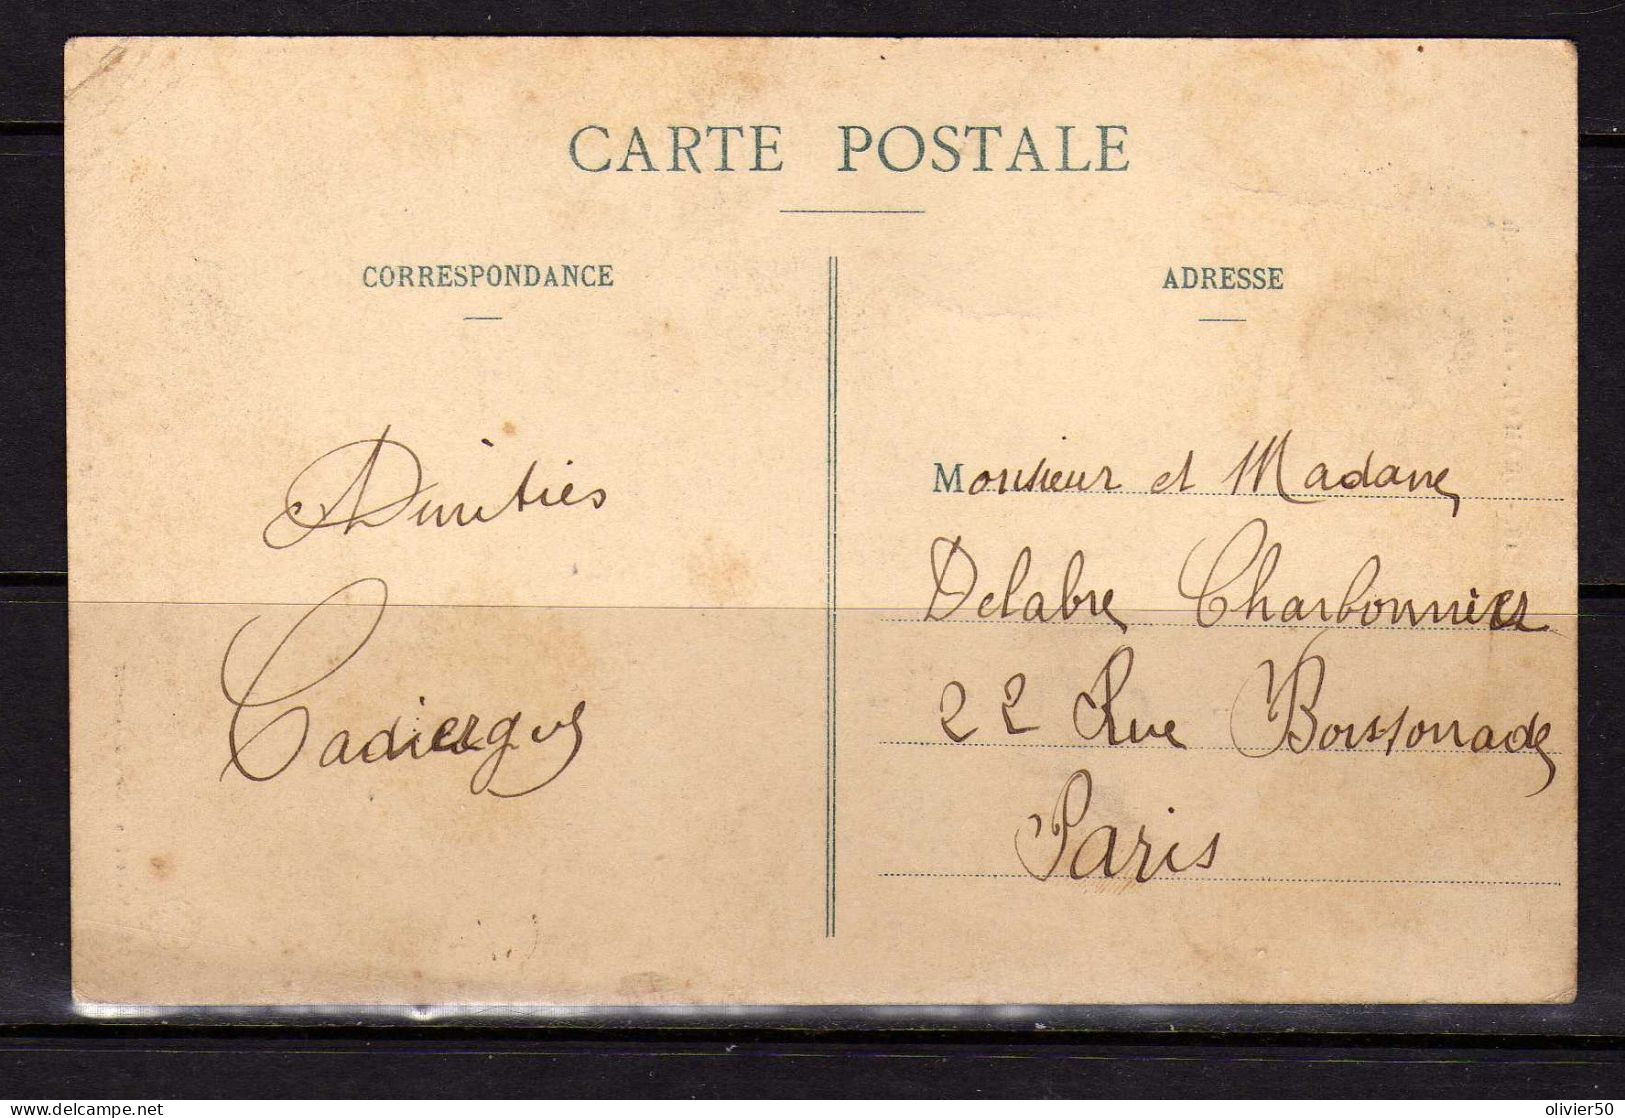 CARTE POSTALE
CORRESPONDANCE
ADRESSE
Amitiés
Cadiergues
Monsieur et Madame
Delabre Charbonnier
22 Rue Boissonade
Paris
delcampe.net
olivier50